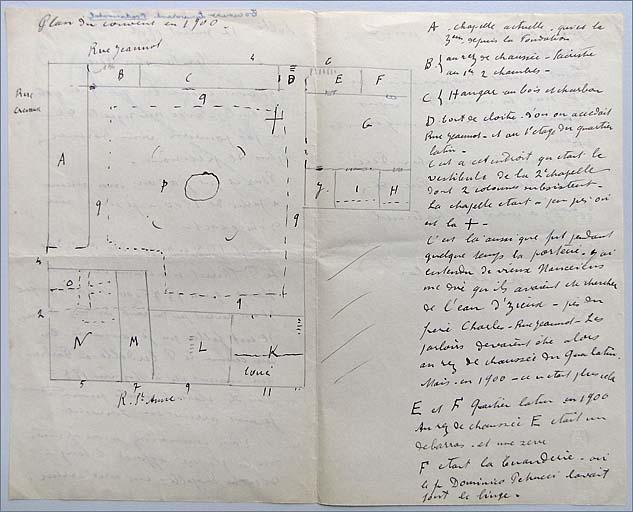 Plan du couvent en 1900
Rue Jeannot
Rue
B
C
4
D
G
E
F
9
G
A
9
P
9
J
I
H
4
9
O
2
N
M
L
K
5
7
9
11
R. Ste Anne
A - chapelle actuelle - qui est la
3ème depuis la Fondation
B. au rez de chaussée - Sacristie
au 1er 2 chambres -
C Hangar au bois et charbon
D. bout de cloître - d'où on accédait
Rue Jeannot - et au 1er étage du quartier
latin -
C'est à cet endroit qu'était le
vestibule de la 2e chapelle
dont 2 colonnes subsistent -
La chapelle était à peu près où
est la +
C'est là aussi que fut pendant
quelque temps la porterie - j'ai
entendu de vieux Nanceiens
me dire qu'ils avaient été chercher
de l'eau - près du
frère Charles - Rue Jeannot - Les
parloirs devaient être alors
au rez de chaussée du Quar. latin.
Mais - en 1900 - ce n'était plus cela
E et F Quartier latin en 1900
Au rez de chaussée E était un
débarras - et une
F était la Buanderie - où
le f. Dominico lavait
tout le linge -